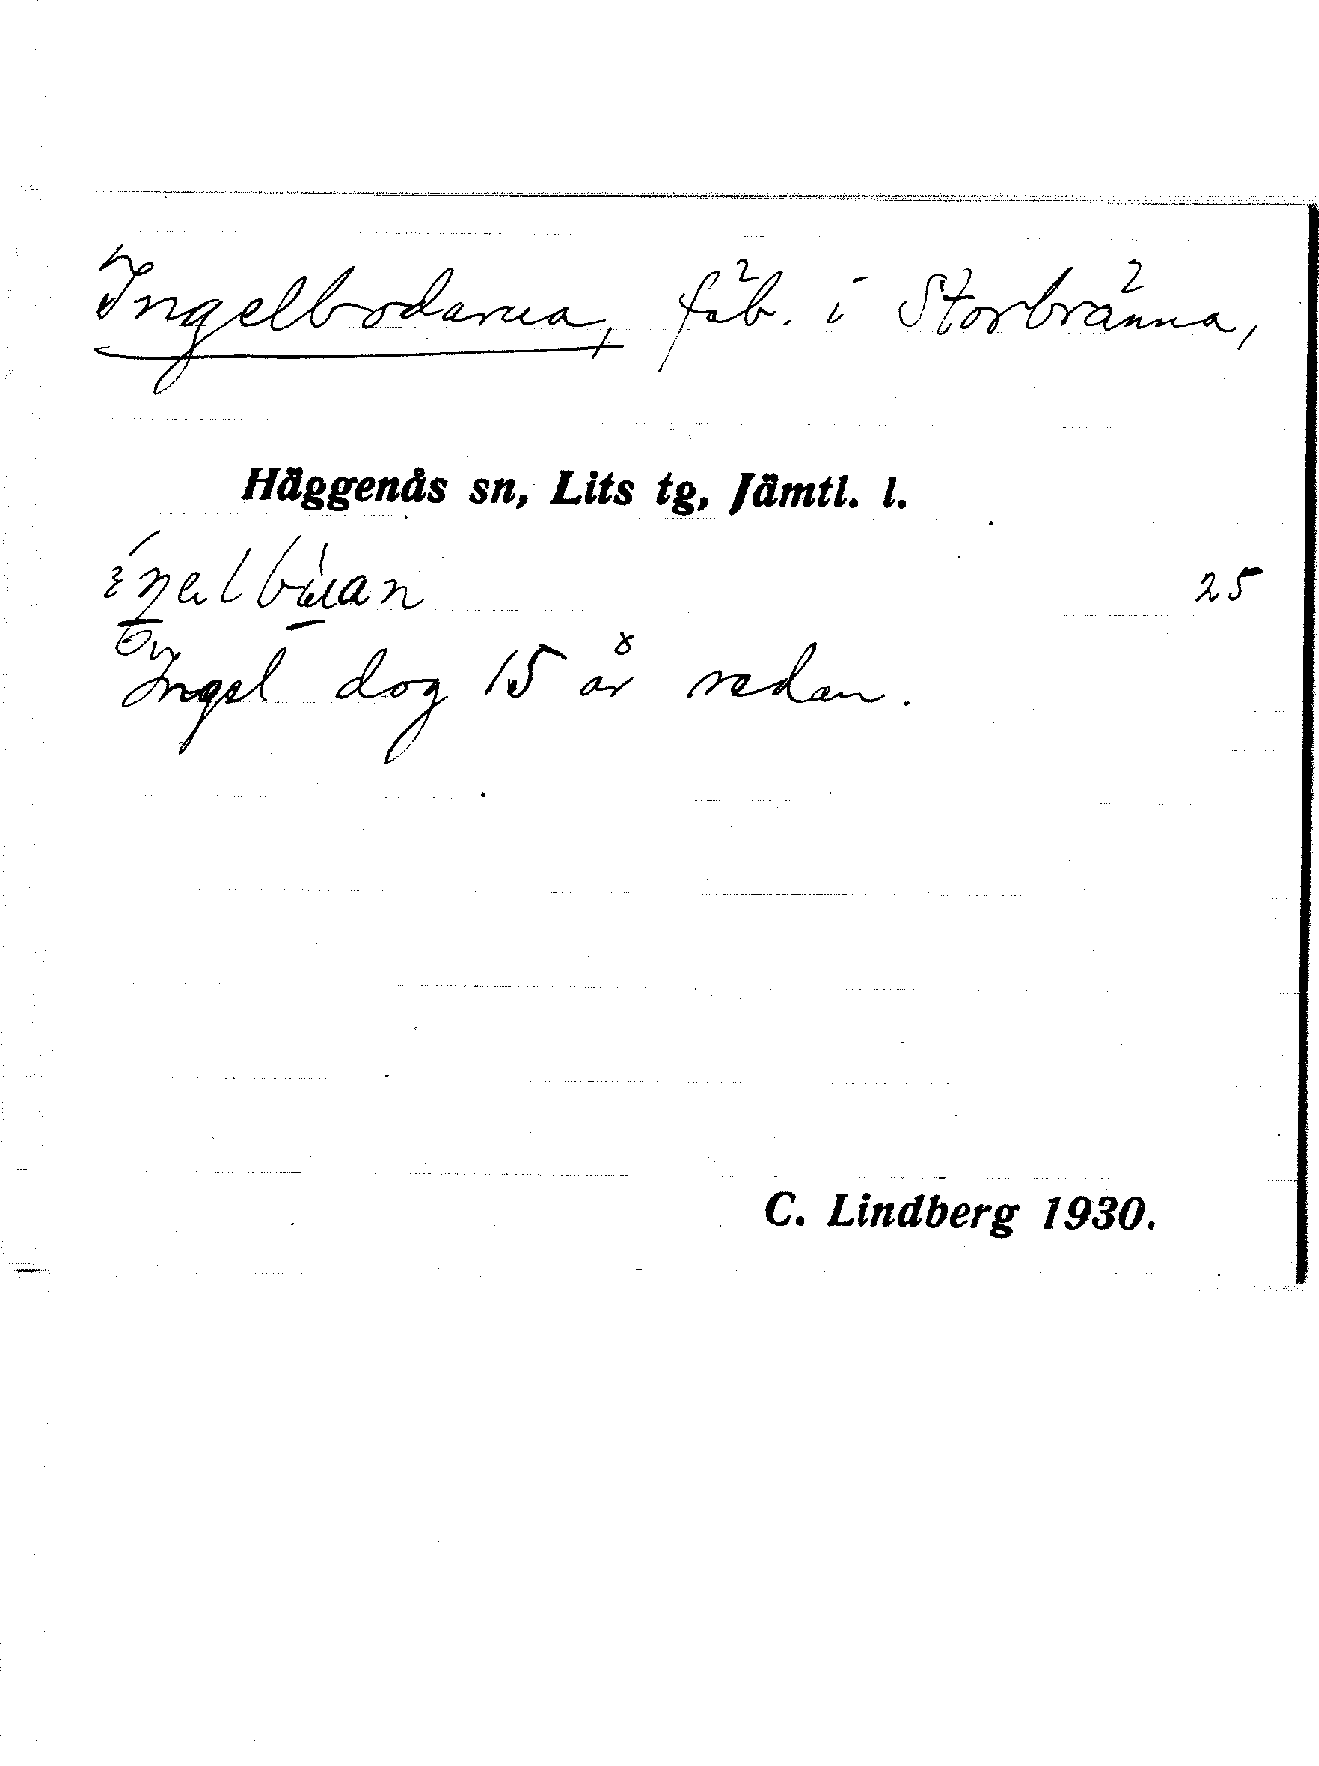 Ingelbodarna, fäb. i Storbränna,
Häggenås sn, Lits tg, Jämtl. l.
25
Ingel dog 15 år sedan.
C. Lindberg 1930.